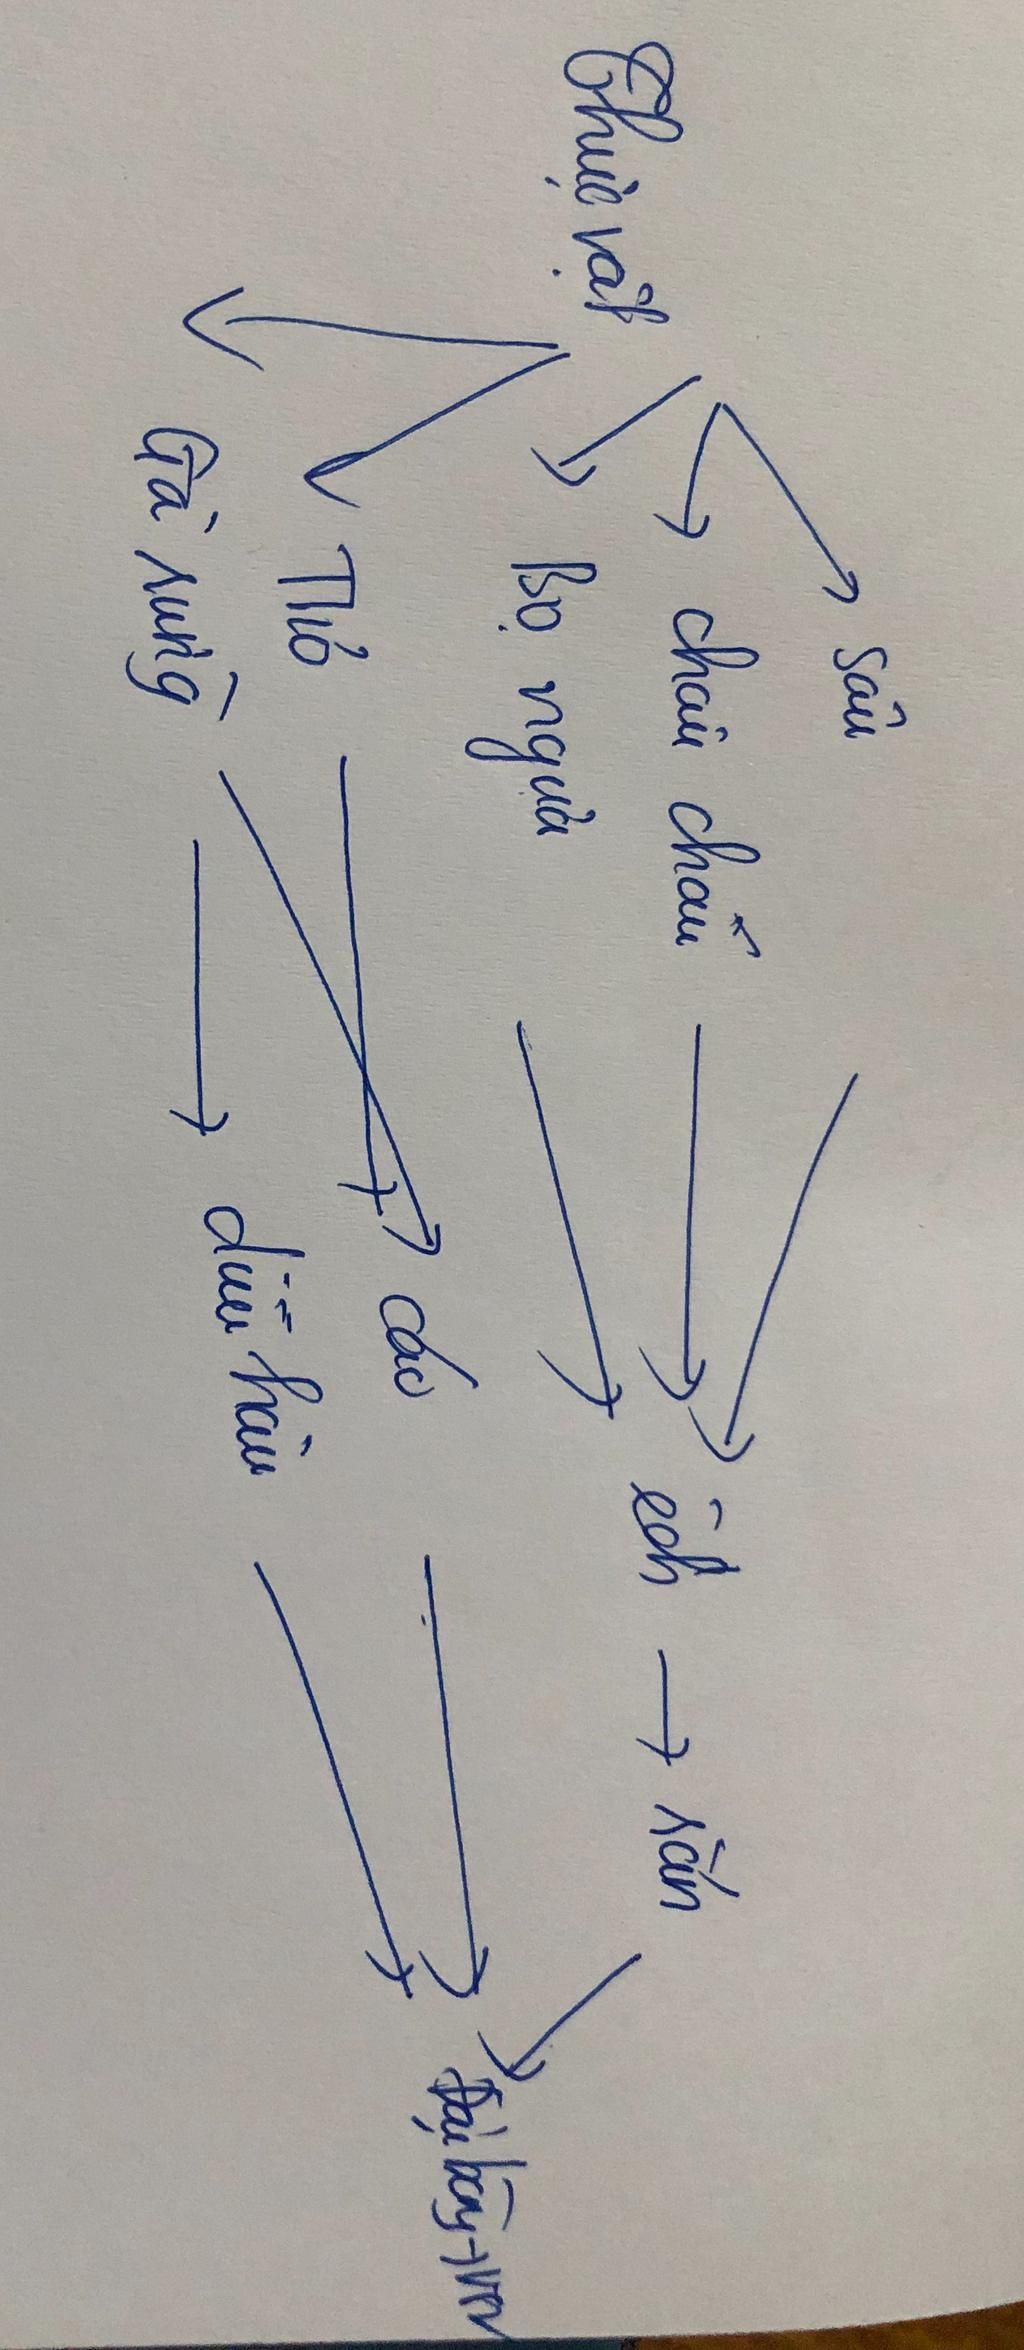 Thực vật
sâu
châu chấu
Bọ ngựa
Thỏ
Gà rừng
ếch → rắn
cáo
diều hâu
Đại bàng → VSV